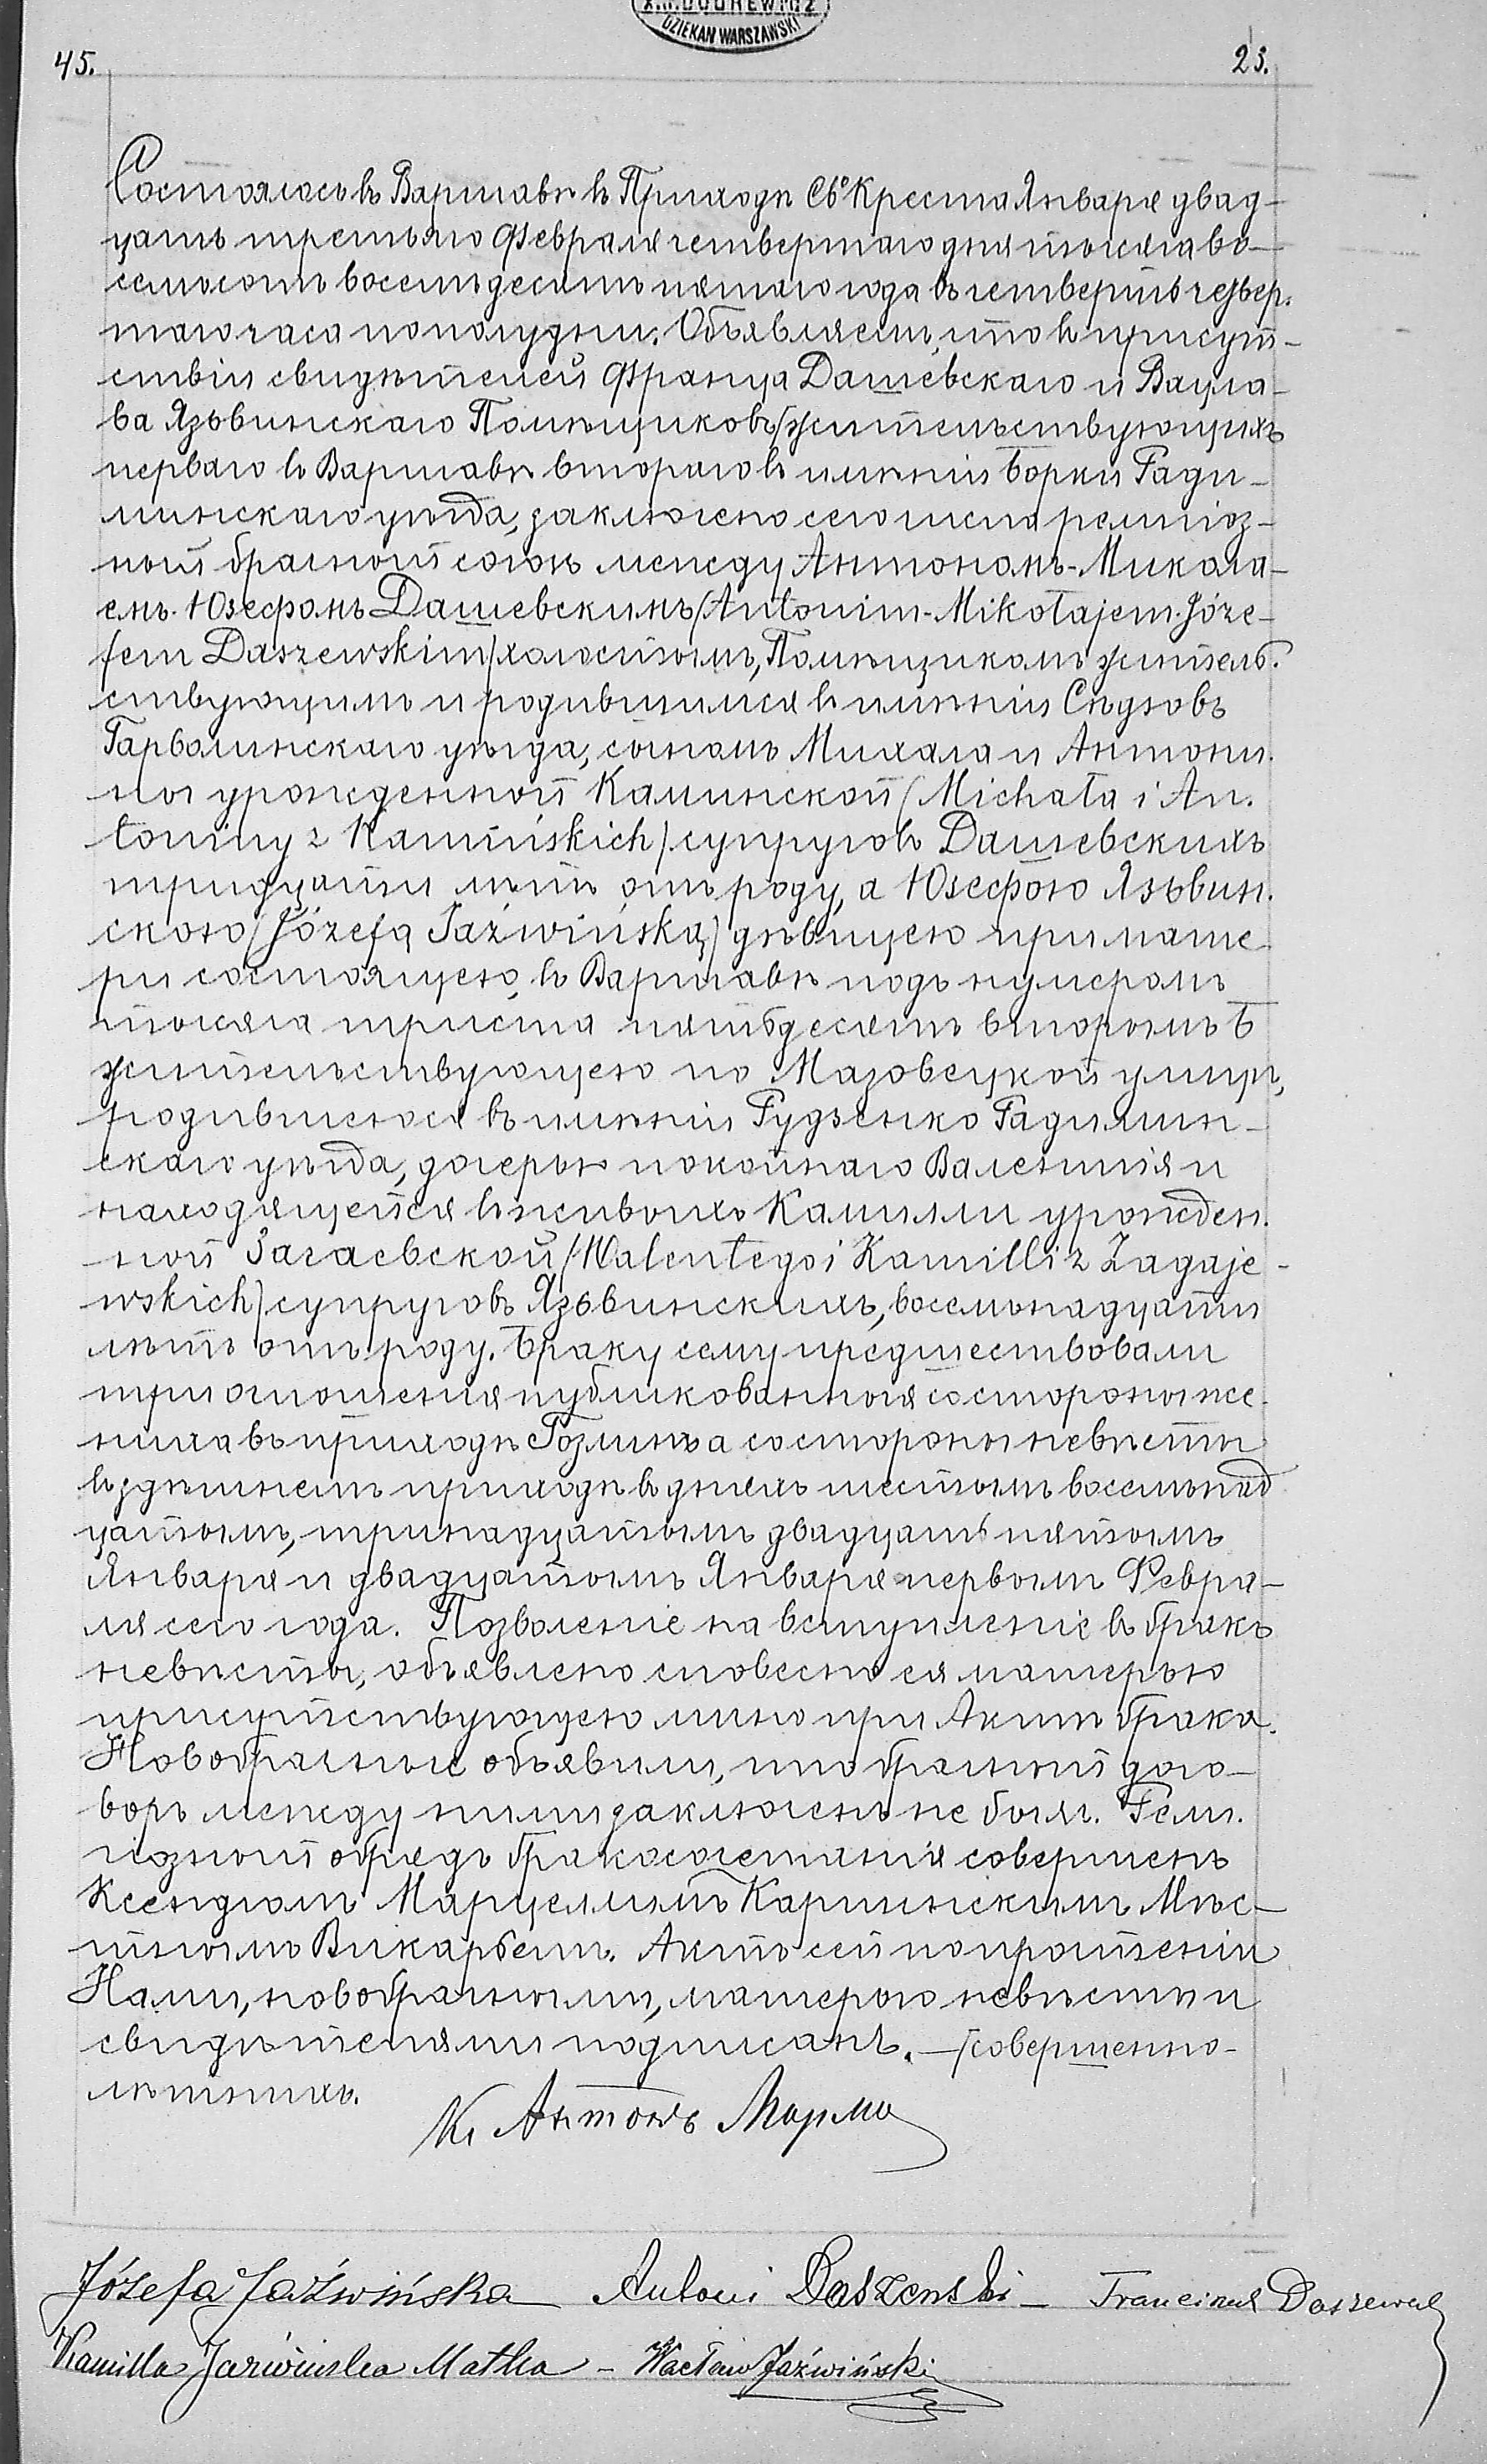 X.J.DUDREWICZ
DZIEKAN WARSZAWSKI
45.
23.
Состоялось въ Варшавѣ въ Приходѣ Св° Креста Января двад-
цать третьяго Февраля четвертаго дня тысяча во-
семьсотъ восемдесятъ пятаго года въ четверть четвер-
таго часа пополудни. Объявляемъ, что въ присут-
ствіи свидѣтелей Франца Дашевскаго и Вацла-
ва Язьвинскаго Помѣщиковъ/жительствующихъ
перваго въ Варшавѣ втораго въ имѣніи Борки Ради-
минскаго уѣзда, заключено сего числа религіоз-
ный брачный союзъ между Антономъ-Микола-
емъ-Юзефомъ Дашевскимъ/Antonim-Mikołajem-Józe-
fem Daszewskim/холостымъ, Помѣщикомъ житель-
ствующимъ и родившимся въ имѣніи Сѣдзовъ
Гарволинскаго уѣзда, сыномъ Михала и Антони-
ны урожденной Каминской/Michała i An-
toniny z Kamińskich/супруговъ Дашевскихъ
тридцати лѣтъ отъ роду, а Юзефою Язьвин-
скою/Józefą Jaźwińską/дѣвицею при мате-
ри состоящею, въ Варшавѣ подъ нумеромъ
тысяча триста пятьдесятъ вторымъ Б
жительствующею по Мазовецкой улицѣ,
родившеюся въ имѣніи Рудзенко Радимин-
скаго уѣзда, дочерью покойнаго Валентія и
находящейся въ живыхъ Камилли урожден-
ной Загаевской/Walentego i Kamilli z Zagaje-
wskich/супруговъ Язьвинскихъ, восемьнадцати
лѣтъ отъ роду. Браку сему предшествовали
три оглошенія публикованныя со стороны же-
ниха въ приходѣ Гозлинъ а со стороны невѣсты
въ здѣшнемъ приходѣ въ дняхъ шестымъ восемьнад
цатымъ, тринадцатымъ двадцать пятымъ
Января и двадцатымъ Января первымъ Февра-
ля сего года. Позволеніе на вступленіе въ бракъ
невѣсты, объявлено словесно ея матерью
присутствующею лично при Актѣ брака.
Новобрачные объявили, что брачный дого-
воръ между ними заключенъ не былъ. Рели-
гіозный обрядъ бракосочетанія совершенъ
Ксендзомъ Марцелимъ Карпинскимъ Мѣс-
тнымъ Викарбемъ. Актъ сей по прочтеніи
Нами, новобрачными, матерью невѣсты и
свидѣтелями подписанъ. —/совершенно-
лѣтнихъ.
К. Антонъ
Józefa Jaźwińska Antoni Daszewski — Franciszek Daszewski
Kamilla Jaźwińska Matka — Wacław Jaźwiński